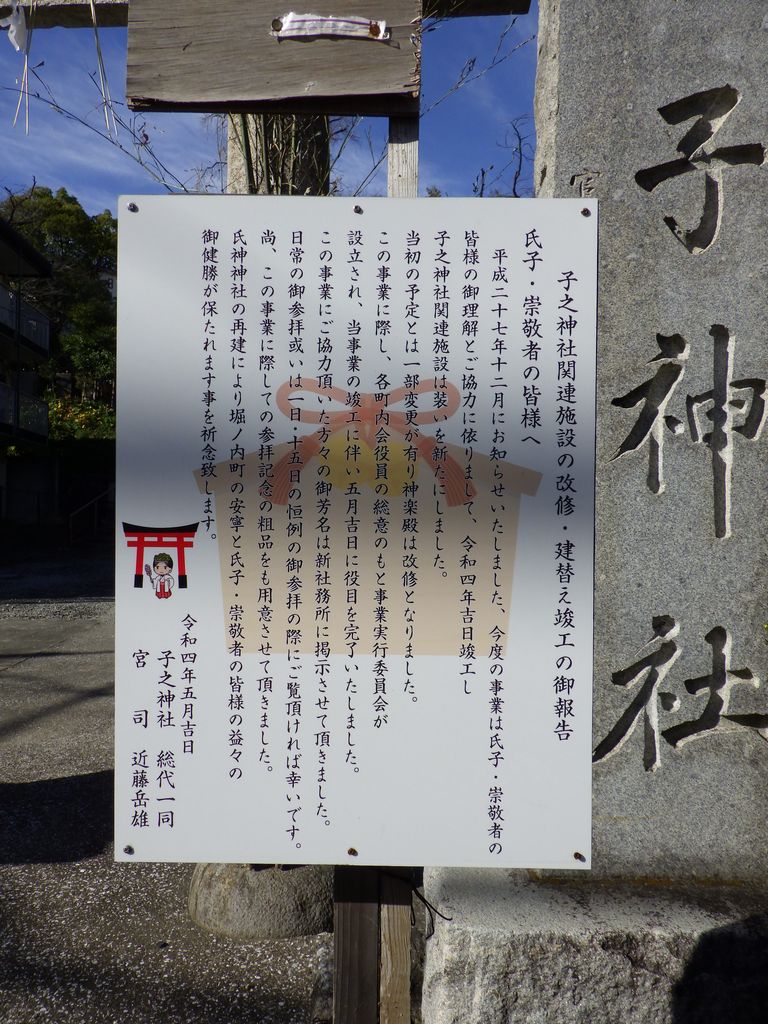 子之神社関連施設の改修・建替え竣工の御報告
氏子・崇敬者の皆様へ
平成二十七年十二月にお知らせいたしました、今度の事業は氏子・崇敬者の
皆様の御理解とご協力に依りまして、令和四年吉日竣工し
子之神社関連施設は装いを新たにしました。
当初の予定とは一部変更が有り神楽殿は改修となりました。
この事業に際し、各町内会役員の総意のもと事業実行委員会が
設立され、当事業の竣工に伴い五月吉日に役目を完了いたしました。
この事業にご協力頂いた方々の御芳名は新社務所に掲示させて頂きました。
日常の御参拝或いは一日・十五日の恒例の御参拝の際にご覧頂ければ幸いです。
尚、この事業に際しての参拝記念の粗品をも用意させて頂きました。
氏神神社の再建により堀ノ内町の安寧と氏子・崇敬者の皆様の益々の
御健勝が保たれます事を祈念致します。
令和四年五月吉日
子之神社 総代一同
宮司 近藤岳雄
子神社
宮